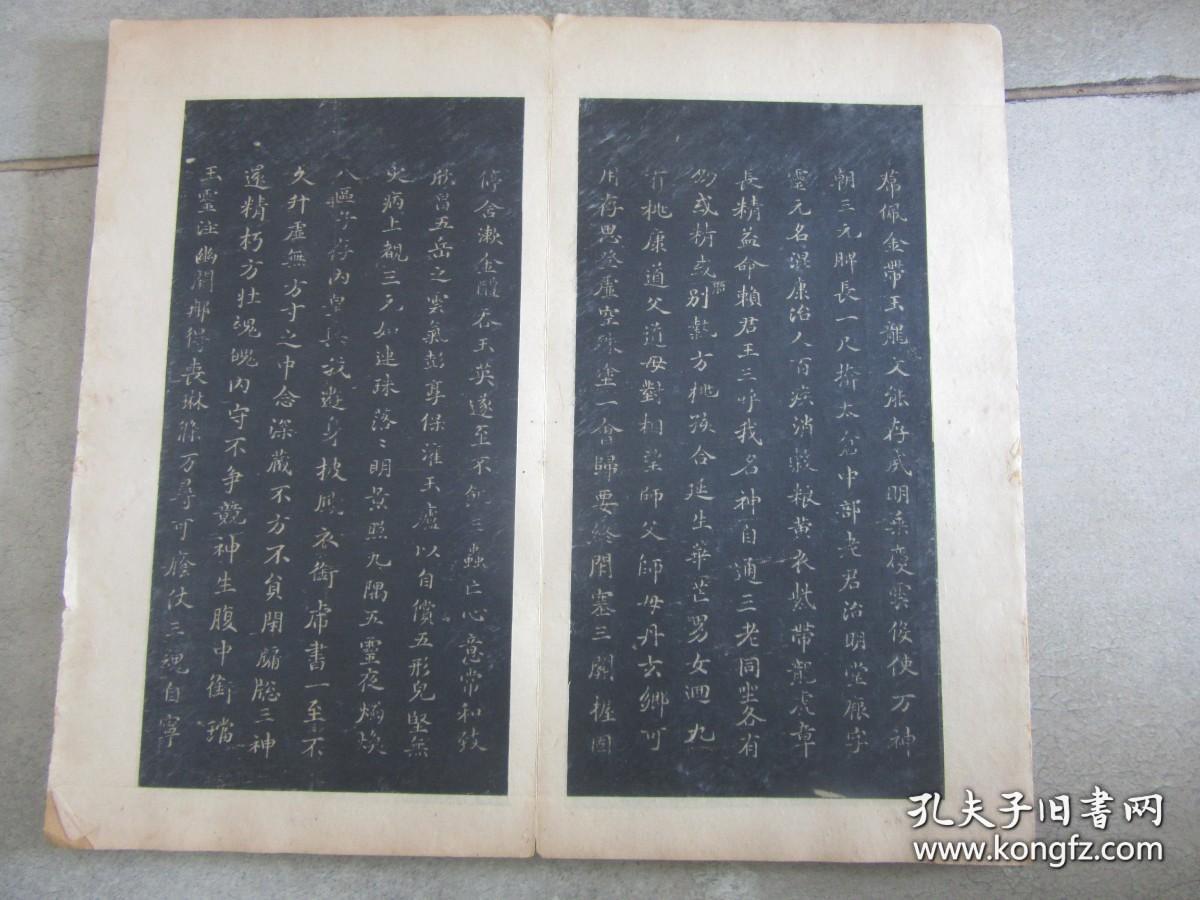 席佩金帶玉龍文能存威明乘慶雲役使万神
朝三元脾長一尺掩太倉中部老君治明堂厥字
靈元名混康治人百疾消穀粮黄衣紫帶龍虎章
長精益命賴君王三呼我名神自通三老同坐各有
朋或精或胎別執方桃孩合延生華芒男女迴九
有桃康道父道母對相望師父師母丹玄鄉可
用存思登虛空殊塗一會歸要終閇塞三關握固
停含漱金醴吞玉英遂至不飢三蟲亡心意常和致
欣昌五岳之雲氣彭亨保灌玉廬以自償五形完堅無
灾病上覩三元如連珠落〻明景照九隅五靈夜燭煥
八區子存內皇與我遊身披鳳衣銜虎書一至不
久升虛無方寸之中念深藏不方不員閇牖牕三神
還精朽方壯魂魄內守不爭競神生腹中銜璫
玉靈注幽闕那得喪琳條万尋可蔭仗三魂自寧
孔夫子旧书网
www.kongfz.com